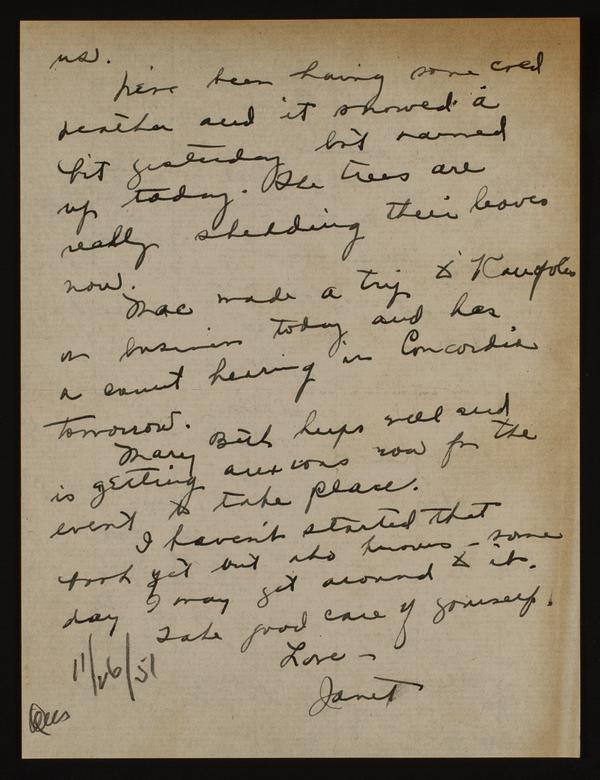 us.
We've been having some cool
weather and it snowed a
bit yesterday but warmed
up today. The trees are
really shedding their leaves
now.
Mac made a trip to Kanopolis
on business today and has
a court hearing in Concordia
tomorrow.
Mary Beth keeps well and
is getting anxious now for the
event to take place.
I haven't started that
book yet but who knows - some
day I may get around to it.
Take good care of yourself.
Love -
Janet
11/26/51